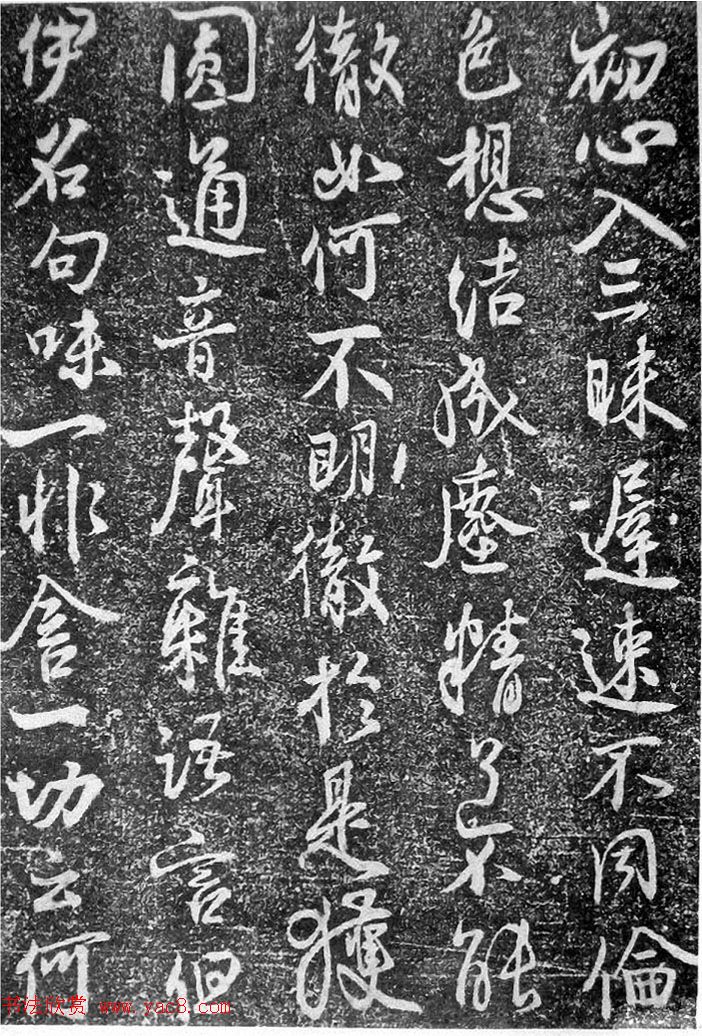 初心入三昧遲速不同倫
色想結成塵精了不能
徹如何不明徹於是獲
圓通音聲雜語言但
伊名句味一非含一切云何
书法欣赏 www.yac8.com